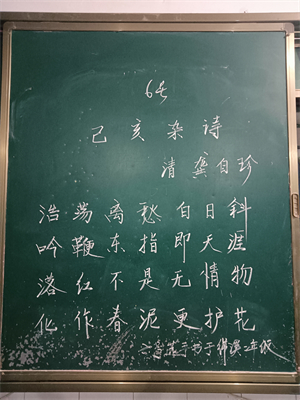 己亥杂诗
清 龚自珍
浩荡离愁白日斜
吟鞭东指即天涯
落红不是无情物
化作春泥更护花